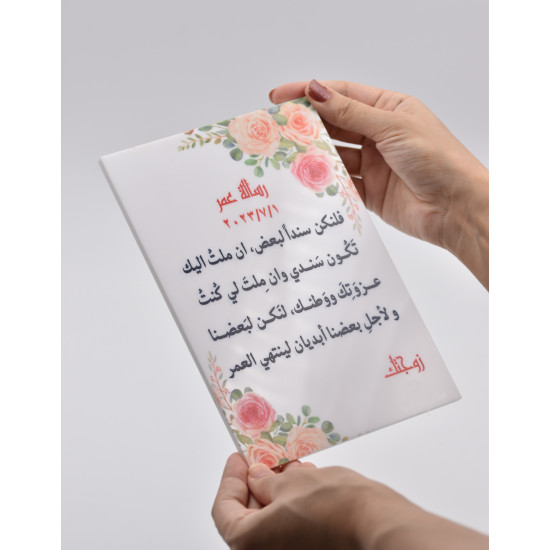 رسالة عمر
٢٠٢٣/٧/١
فلنكن سنداً لبعض، ان ملتُ اليك
تَكُون سَندي وان مِلتَ لي كُنتُ
عـزوَتِكَ ووَطنـك، لنَكـن لبَعضـنا
ولأجلِ بعضنا أبديان لينتهي العمر
زوجتك